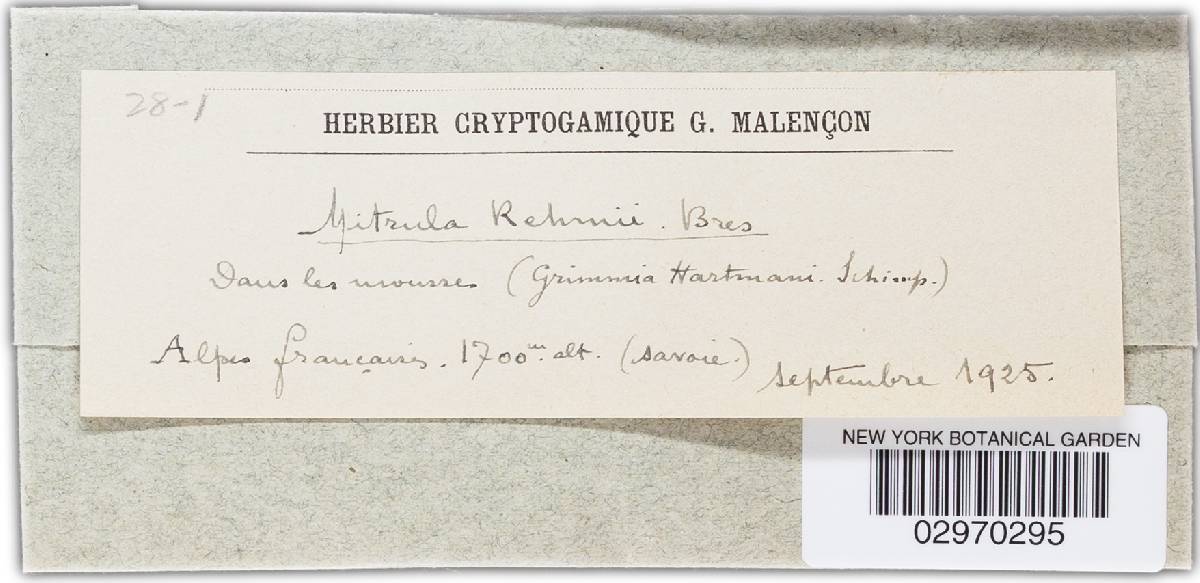 28-1
HERBIER CRYPTOGAMIQUE G. MALENÇON
Mitrula Rehmii. Bres
Dans les mousses (Grimmia Hartmani. Schimp.)
Alpes françaises. 1700m. alt. (Savoie.)
septembre 1925.
NEW YORK BOTANICAL GARDEN
02970295